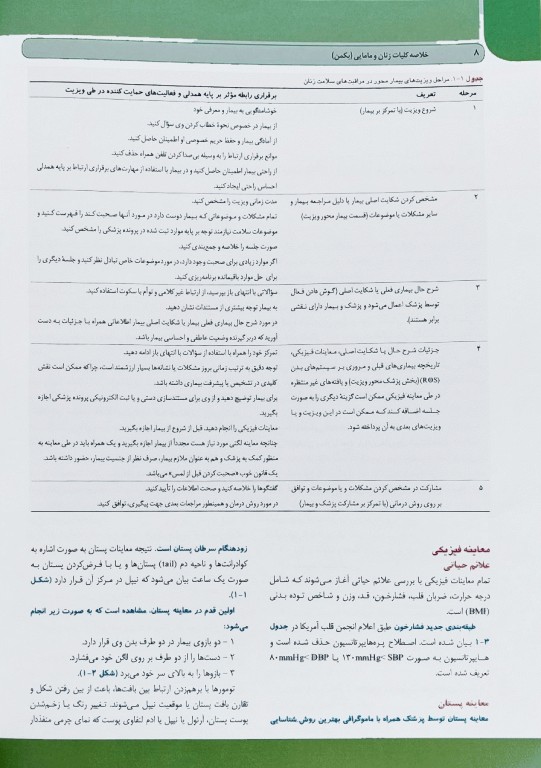 ۸
خلاصه کلیات زنان و مامایی (بکمن)
جدول ۱-۱. مراحل ویزیت‌های بیمار محور در مراقبت‌های سلامت زنان
مرحله
تعریف
برقراری رابطه مؤثر بر پایه همدلی و فعالیت‌های حمایت کننده در طی ویزیت
۱
شروع ویزیت (با تمرکز بر بیمار)
خوشامدگویی به بیمار و معرفی خود
از بیمار در خصوص نحوهٔ خطاب کردن وی سؤال کنید.
از آمادگی بیمار و حفظ حریم خصوصی او اطمینان حاصل کنید.
موانع برقراری ارتباط را به وسیله بی‌صدا کردن تلفن همراه حذف کنید.
از راحتی بیمار اطمینان حاصل کنید و در بیمار با استفاده از مهارت‌های برقراری ارتباط بر پایه همدلی
احساس راحتی ایجاد کنید.
۲
مشخص کردن شکایت اصلی بیمار یا دلیل مراجعه بیمار و
سایر مشکلات یا موضوعات (قسمت بیمار محور ویزیت)
مدت زمانی ویزیت را مشخص کنید.
تمام مشکلات و موضوعاتی که بیمار دوست دارد در مورد آنها صحبت کند را فهرست کنید و
موضوعات سلامت نیازمند توجه بر پایه موارد ثبت شده در پرونده پزشکی را مشخص کنید.
صورت جلسه را خلاصه و جمع‌بندی کنید.
اگر موارد زیادی برای صحبت وجود دارد، در مورد موضوعات خاص تبادل نظر کنید و جلسهٔ دیگری را
برای حل موارد باقیمانده برنامه‌ریزی کنید.
۳
شرح حال بیماری فعلی یا شکایت اصلی (گوش دادن فعال
توسط پزشک اعمال می‌شود و پزشک و بیمار دارای نقشی
برابر هستند).
سؤالاتی با انتهای باز بپرسید، از ارتباط غیر کلامی و توأم با سکوت استفاده کنید.
به بیمار توجه بیشتری از مستندات نشان دهید.
در مورد شرح حال بیماری فعلی بیمار یا شکایت اصلی بیمار اطلاعاتی همراه با جزئیات به دست
آورید که دربر گیرنده وضعیت عاطفی و احساسی بیمار باشد.
۴
جزئیات شرح حال یا شکایت اصلی، معاینات فیزیکی،
تاریخچه بیماری‌های قبلی و مروری بر سیستم‌های بدن
(ROS) (بخش پزشک محور ویزیت) و یافته‌های غیر منتظره
در طی معاینه فیزیکی ممکن است گزینهٔ دیگری را به صورت
جلسه اضافه کند که ممکن است در این ویزیت و یا
ویزیت‌های بعدی به آن پرداخته شود.
تمرکز خود را همراه با استفاده از سؤالات با انتهای باز ادامه دهید.
توجه دقیق به ترتیب زمانی بروز مشکلات یا نشانه‌ها بسیار ارزشمند است، چرا که ممکن است نقش
کلیدی در تشخیص یا پیشرفت بیماری داشته باشد.
برای بیمار توضیح دهید و از وی برای مستندسازی دستی و یا ثبت الکترونیکی پرونده پزشکی اجازه
بگیرید.
معاینات فیزیکی را انجام دهید. قبل از شروع از بیمار اجازه بگیرید.
چنانچه معاینه لگنی مورد نیاز هست مجدداً از بیمار اجازه بگیرید و یک همراه باید در طی معاینه به
منظور کمک به پزشک و هم به عنوان ملازم بیمار، صرف نظر از جنسیت بیمار، حضور داشته باشد.
یک قانون خوب «صحبت کردن قبل از لمس» می‌باشد.
۵
مشارکت در مشخص کردن مشکلات و یا موضوعات و توافق
بر روی روش درمانی (با تمرکز بر مشارکت پزشک و بیمار)
گفتگوها را خلاصه کنید و صحت اطلاعات را تأیید کنید.
در مورد روش درمان و همینطور مراجعات بعدی جهت پیگیری، توافق کنید.
معاینه فیزیکی
علائم حیاتی
تمام معاینات فیزیکی با بررسی علائم حیاتی آغاز می‌شوند که شامل
درجه حرارت، ضربان قلب، فشارخون، قد، وزن و شاخص توده بدنی
(BMI) است.
طبقه‌بندی جدید فشارخون طبق اعلام انجمن قلب آمریکا در جدول
۱-۳ بیان شده است. اصطلاح پره‌هایپرتانسیون حذف شده است و
هایپرتانسیون به صورت ۱۳۰mmHg< SBP یا ۸۰mmHg< DBP
تعریف شده است.
معاینه پستان
معاینه پستان توسط پزشک همراه با ماموگرافی بهترین روش شناسایی
زودهنگام سرطان پستان است. نتیجه معاینات پستان به صورت اشاره به
کوادرانت‌ها و ناحیه دم (tail) پستان‌ها و یا با فرض‌کردن پستان به
صورت یک ساعت بیان می‌شود که نیپل در مرکز آن قرار دارد (شکل
۱-۱).
اولین قدم در معاینه پستان، مشاهده است که به صورت زیر انجام
می‌شود:
۱- دو بازوی بیمار در دو طرف بدن وی قرار دارد.
۲- دست‌ها را از دو طرف بر روی لگن خود می‌فشارد.
۳- بازوها را به بالای سر خود می‌برد (شکل ۲-۱).
تومورها با برهم‌زدن ارتباط بین بافت‌ها، باعث از بین رفتن شکل و
تقارن بافت پستان یا موقعیت نیپل می‌شوند. تغییر رنگ یا زخم‌شدن
پوست پستان، آرئول یا نیپل یا ادم لنفاوی پوست که نمای چرمی منفذدار